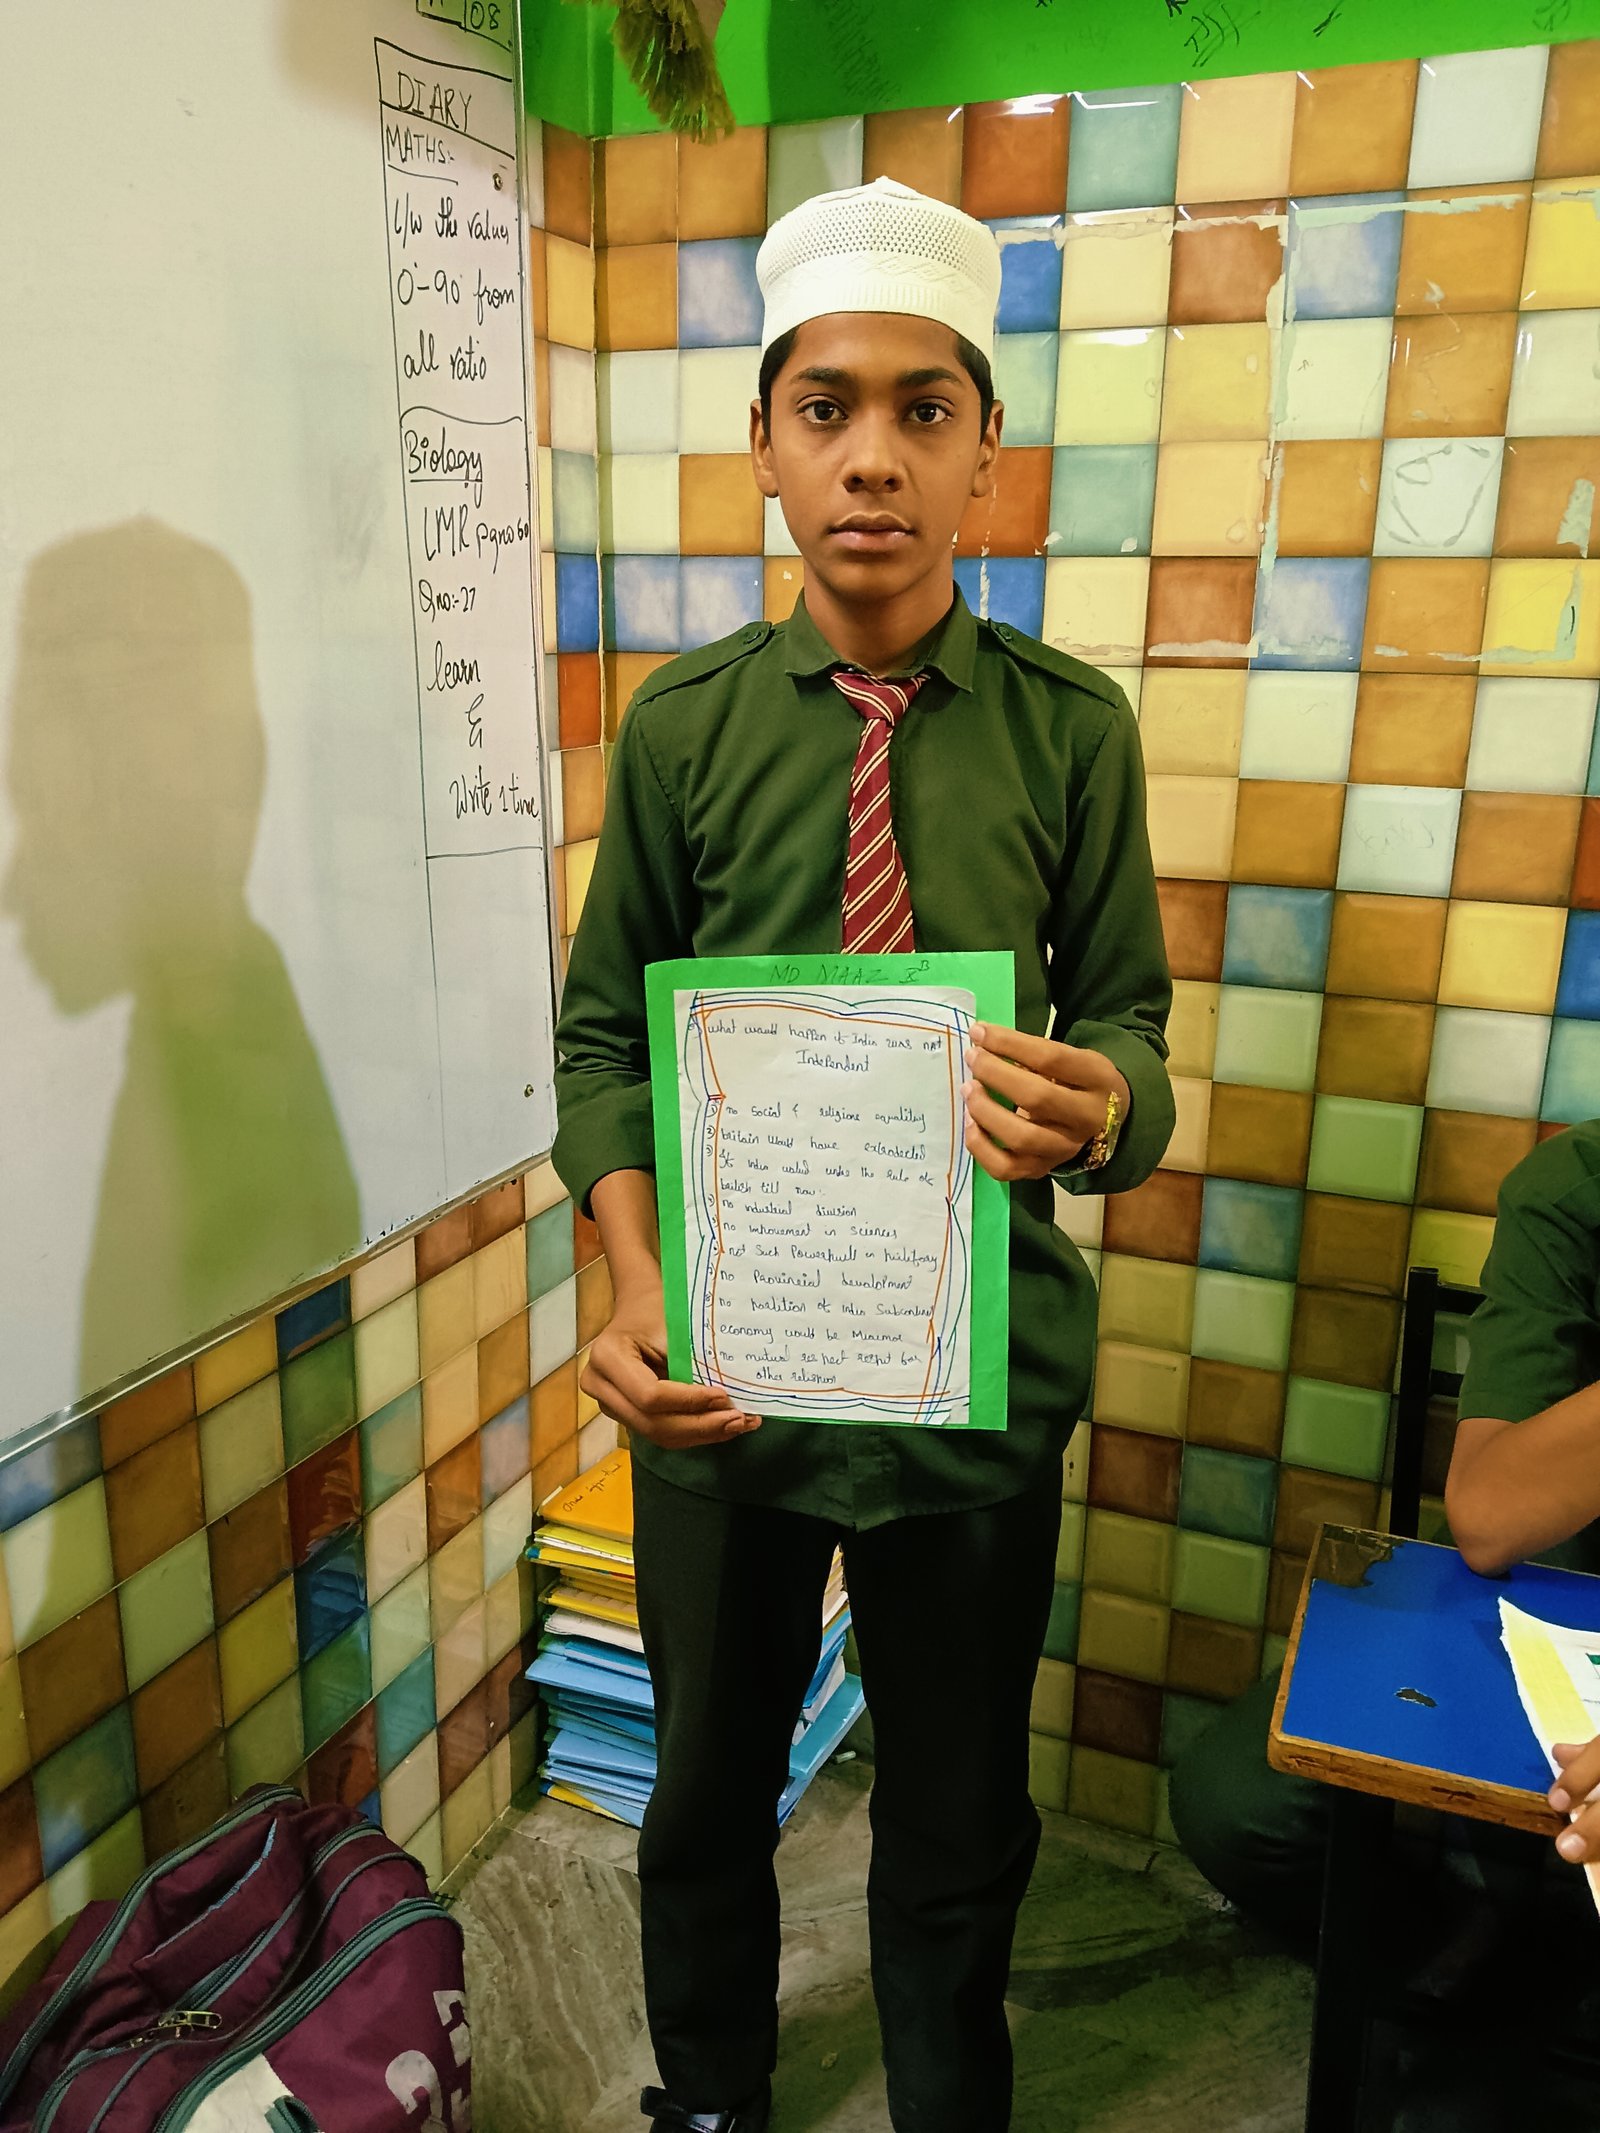 08
DIARY
MATHS:-
L/w the values
0°-90° from
all ratio
Biology
LMR pgno 60
Qno:-27
learn
&
Write 1 time
MD MAAZ X B
what would happen if India was not
Independent
1) no social & religions equalitiy
2) britain would have extradected
3) If India
the rule of
british till now:-
no industrial division
no improvement in Sciences
not Such Powerfull in
no Provincial development
no coalition of India Subcontinent
economy would be
no mutual respect for
other religion